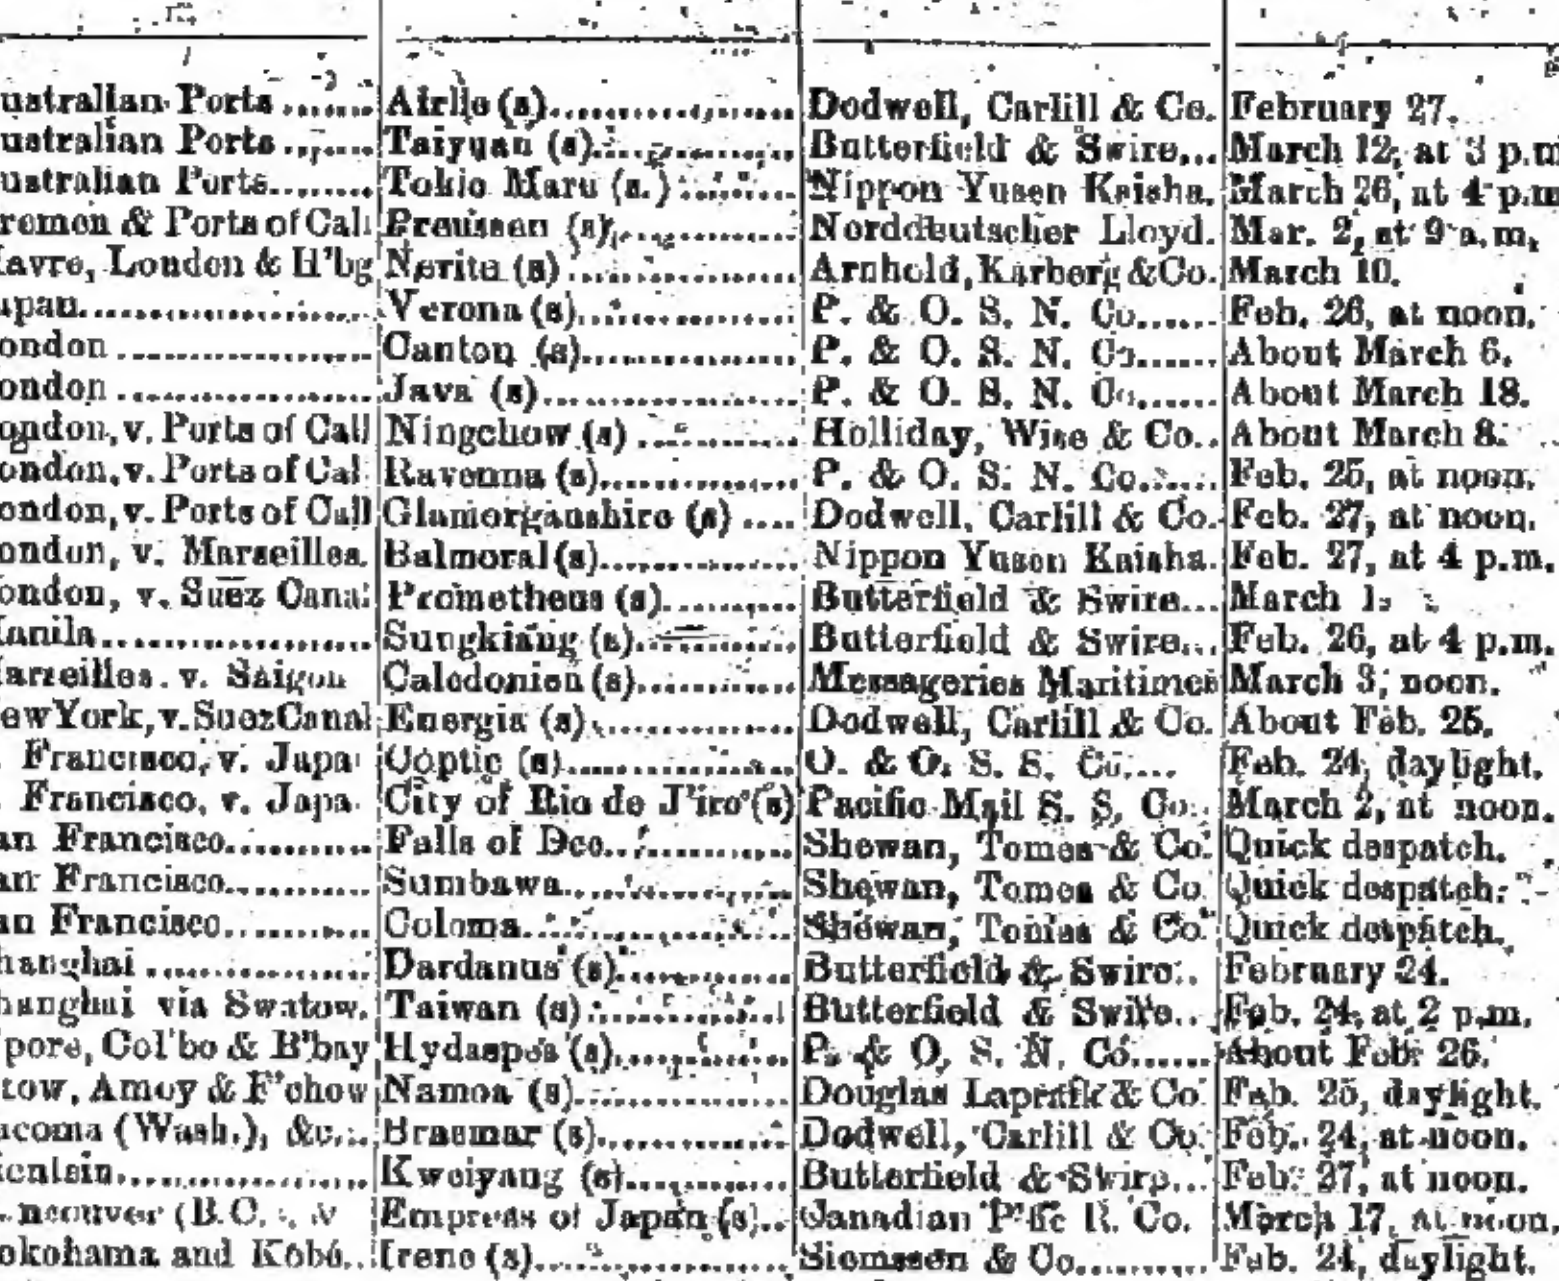 ustralian Ports ........ Airlie (s)........................ Dodwell, Carlill & Co. February 27.
ustralian Ports ........ Taiyuan (s)..................... Butterfield & Swire... March 12, at 3 p.m
ustralian Ports......... Tokio Maru (s.) ............ Nippon Yusen Kaisha. March 26, at 4 p.m
remen & Ports of Cal Preussen (s).................. Norddeutscher Lloyd. Mar. 2, at 9 a.m.
avre, London & H'bg Nerite (s) ..................... Arnhold, Karberg & Co. March 10.
apan........................... Verona (s)..................... P. & O. S. N. Co...... Feb. 26, at noon.
ondon ........................ Canton (s)..................... P. & O. S. N. Co...... About March 6.
ondon ........................ Java (s)......................... P. & O. S. N. Co...... About March 18.
ondon, v. Ports of Call Ningchow (s) ............... Holliday, Wise & Co.. About March 8.
ondon, v. Ports of Cal Ravenna (s)................... P. & O. S. N. Co...... Feb. 25, at noon.
ondon, v. Ports of Call Glamorganshire (s) .... Dodwell, Carlill & Co. Feb. 27, at noon.
ondon, v. Marseilles. Balmoral (s)................... Nippon Yusen Kaisha. Feb. 27, at 4 p.m.
ondon, v. Suez Canal Prometheus (s)............. Butterfield & Swire... March 1.
anila........................... Sungkiang (s)................ Butterfield & Swire... Feb. 26, at 4 p.m.
arseilles. v. Saigon Caledonien (s)............... Messageries Maritimes March 3, noon.
ew York, v. Suez Canal Energia (s).................... Dodwell, Carlill & Co. About Feb. 25.
Francisco, v. Japa Coptic (s)...................... O. & O. S. S. Co..... Feb. 24, daylight.
Francisco, v. Japa City of Rio de J'iro (s) Pacific Mail S. S. Co.. March 2, at noon.
an Francisco............. Falls of Dee.................. Shewan, Tomes & Co. Quick despatch.
an Francisco............. Sumbawa..................... Shewan, Tomes & Co. Quick despatch.
an Francisco............. Coloma......................... Shewan, Tomes & Co. Quick despatch.
hanghai .................... Dardanus (s)................. Butterfield & Swire.. February 24.
hanghai via Swatow. Taiwan (s) .................... Butterfield & Swire.. Feb. 24, at 2 p.m.
'pore, Col'bo & B'bay Hydaspes (s)................. P. & O. S. N. Co....... About Feb. 26.
tow, Amoy & F'chow Namoa (s).................... Douglas Lapraik & Co. Feb. 25, daylight.
acoma (Wash.), &c... Braemar (s).................. Dodwell, Carlill & Co. Feb. 24, at noon.
ientsin........................ Kweiyang (s)................ Butterfield & Swire... Feb. 27, at noon.
ncouver (B.C. Empress of Japan (s).. Canadian P'fic R. Co. March 17, at noon.
okohama and Kobé.. Irene (s)....................... Siemssen & Co.......... Feb. 24, daylight.